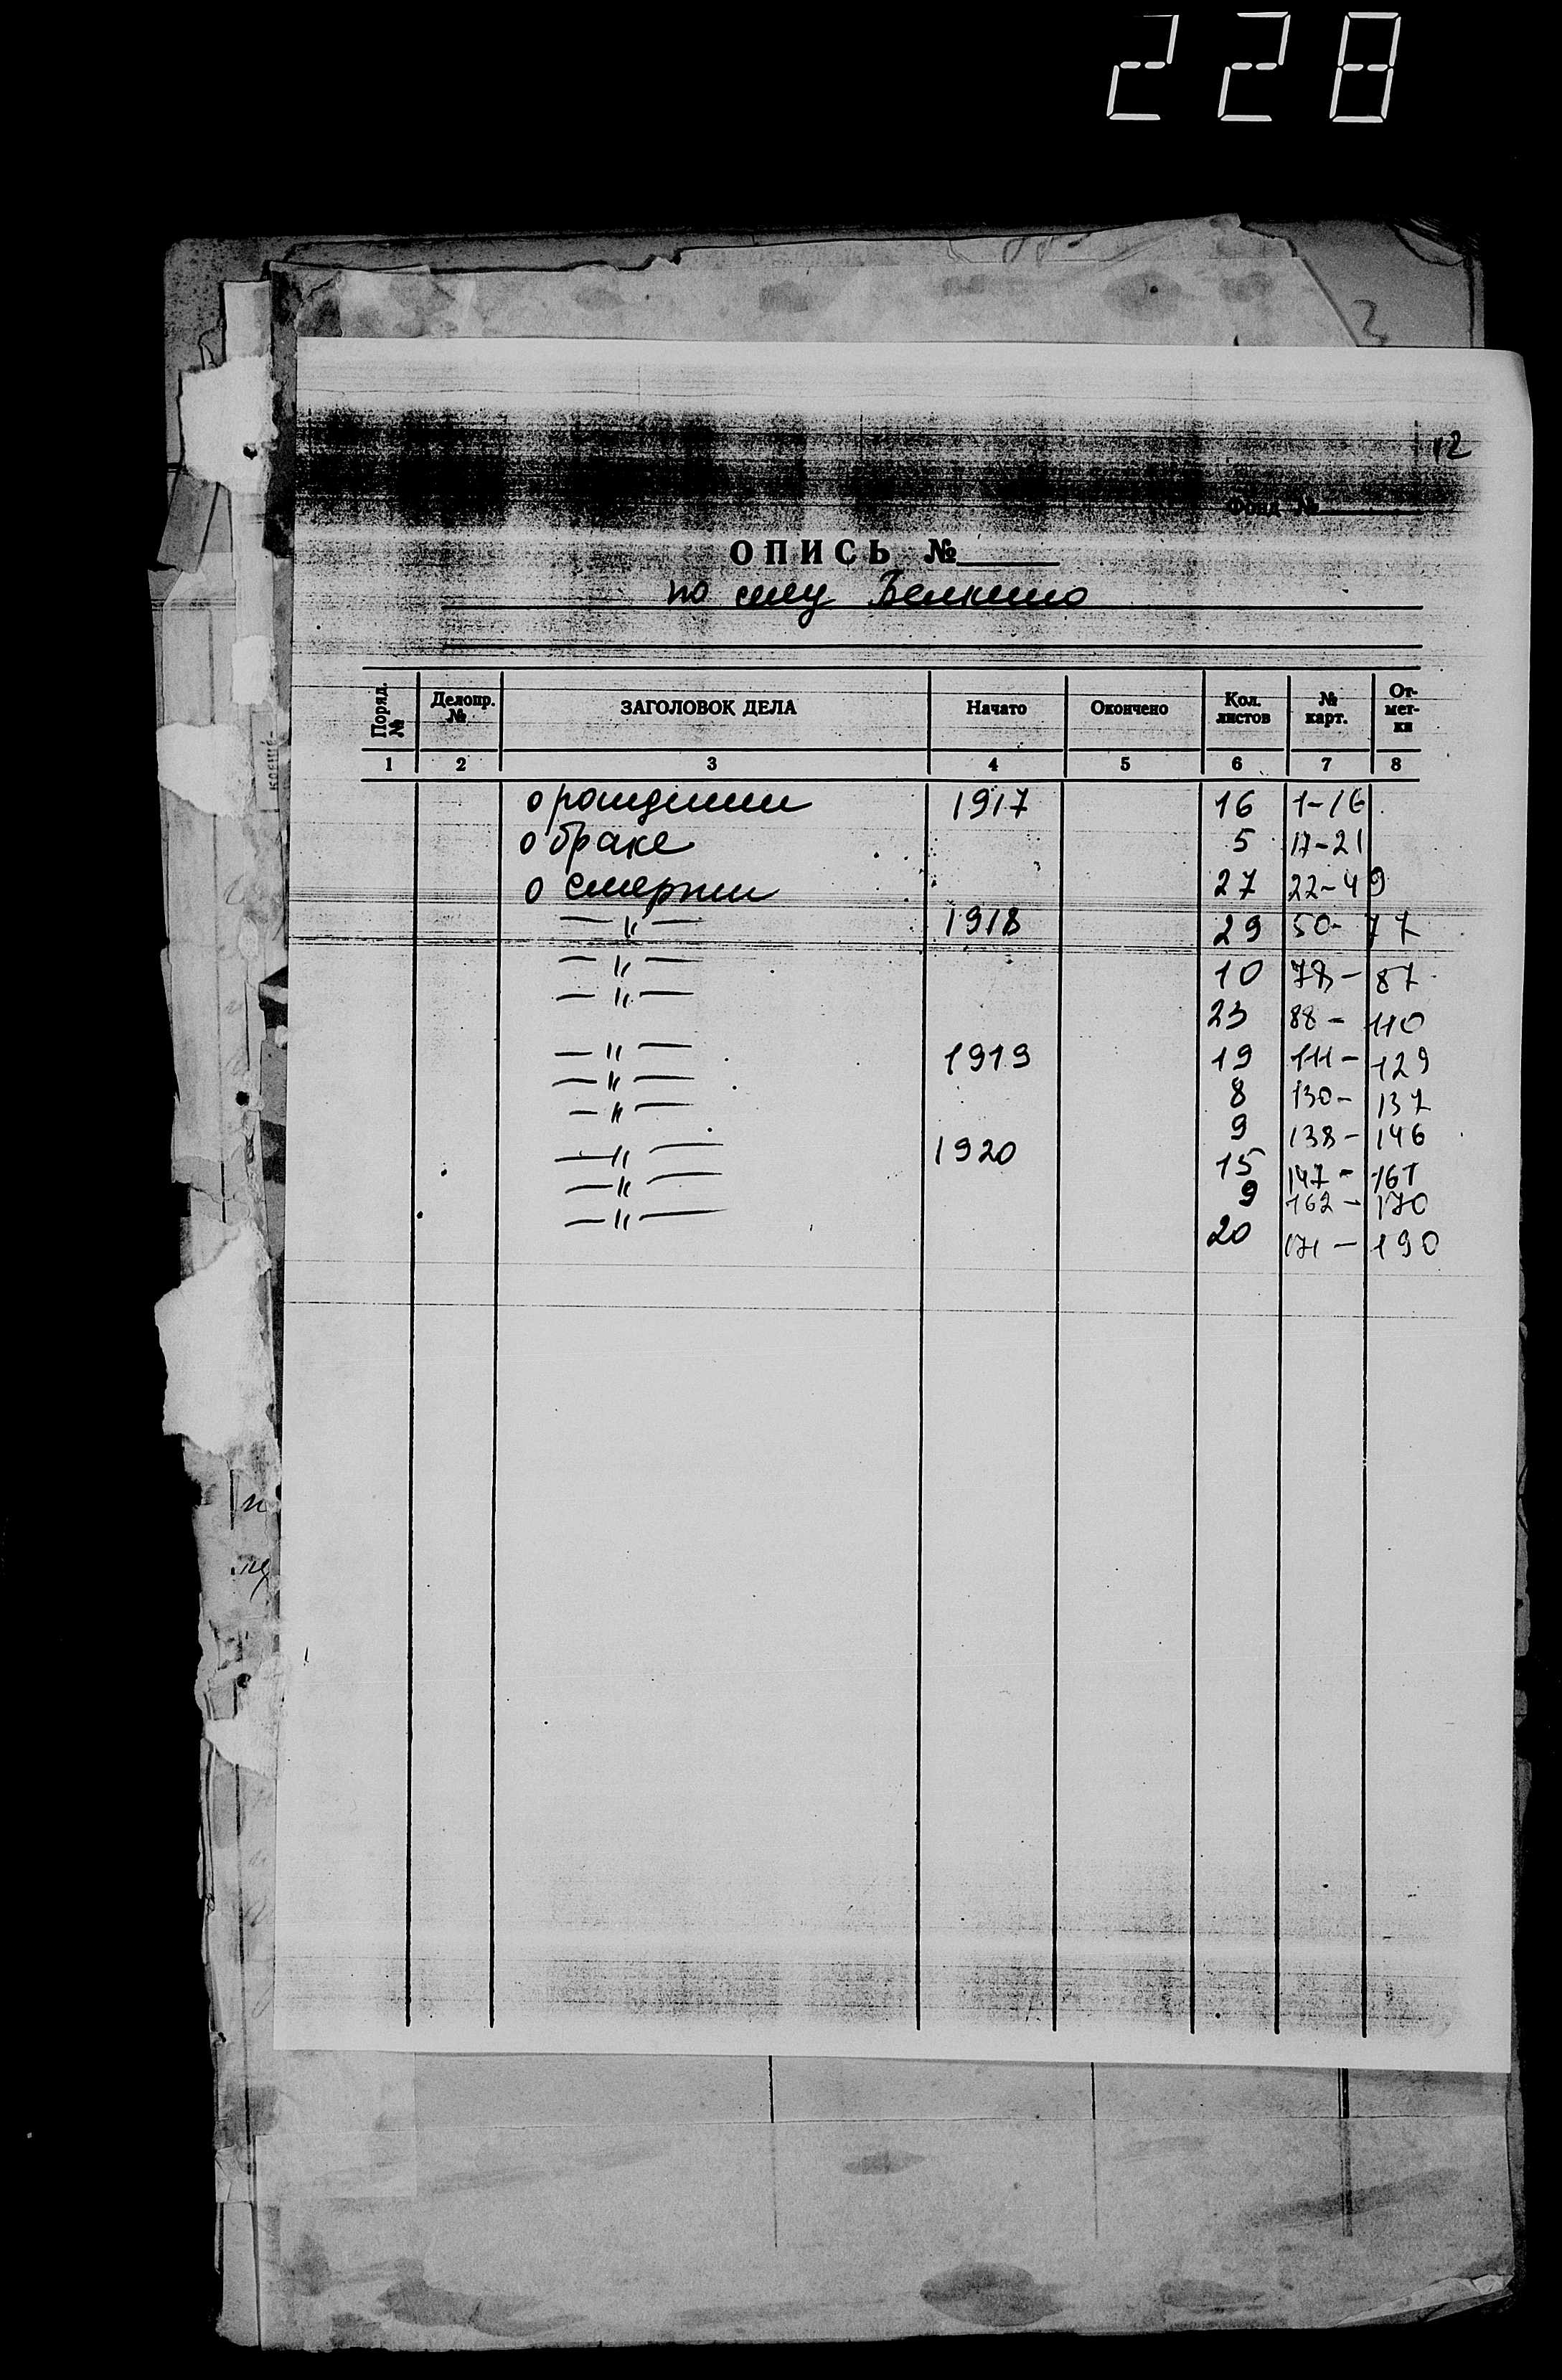 228
3
12
Фонд №
ОПИСЬ №
по селу Белкино
Поряд. № Делопр. № ЗАГОЛОВОК ДЕЛА Начато Окончено Кол. листов № карт. От-мет-ки
1 2 3 4 5 6 7 8
о рождении 1917 16 1-16
о браке 5 17-21
о смерти 27 22-49
—〃— 1918 29 50-77
—〃— 10 78-87
—〃— 23 88-110
—〃— 1919 19 111-129
—〃— 8 130-137
—〃— 9 138-146
—〃— 1920 15 147-161
—〃— 9 162-170
—〃— 20 171-190